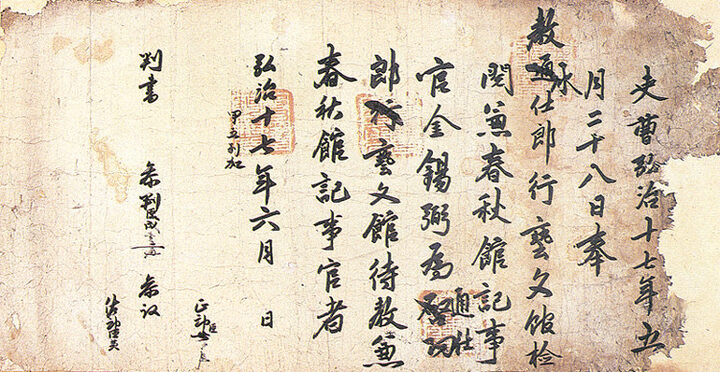 吏曹弘治十七年五
月二十八日奉
教通承仕郎行藝文館檢
閱兼春秋館記事
官金錫弼爲啓功通仕
郎行藝文館待教兼
春秋館記事官者
弘治十七年六月 日
甲子別加
判書 參判臣 參議
正郎臣
佐郎臣